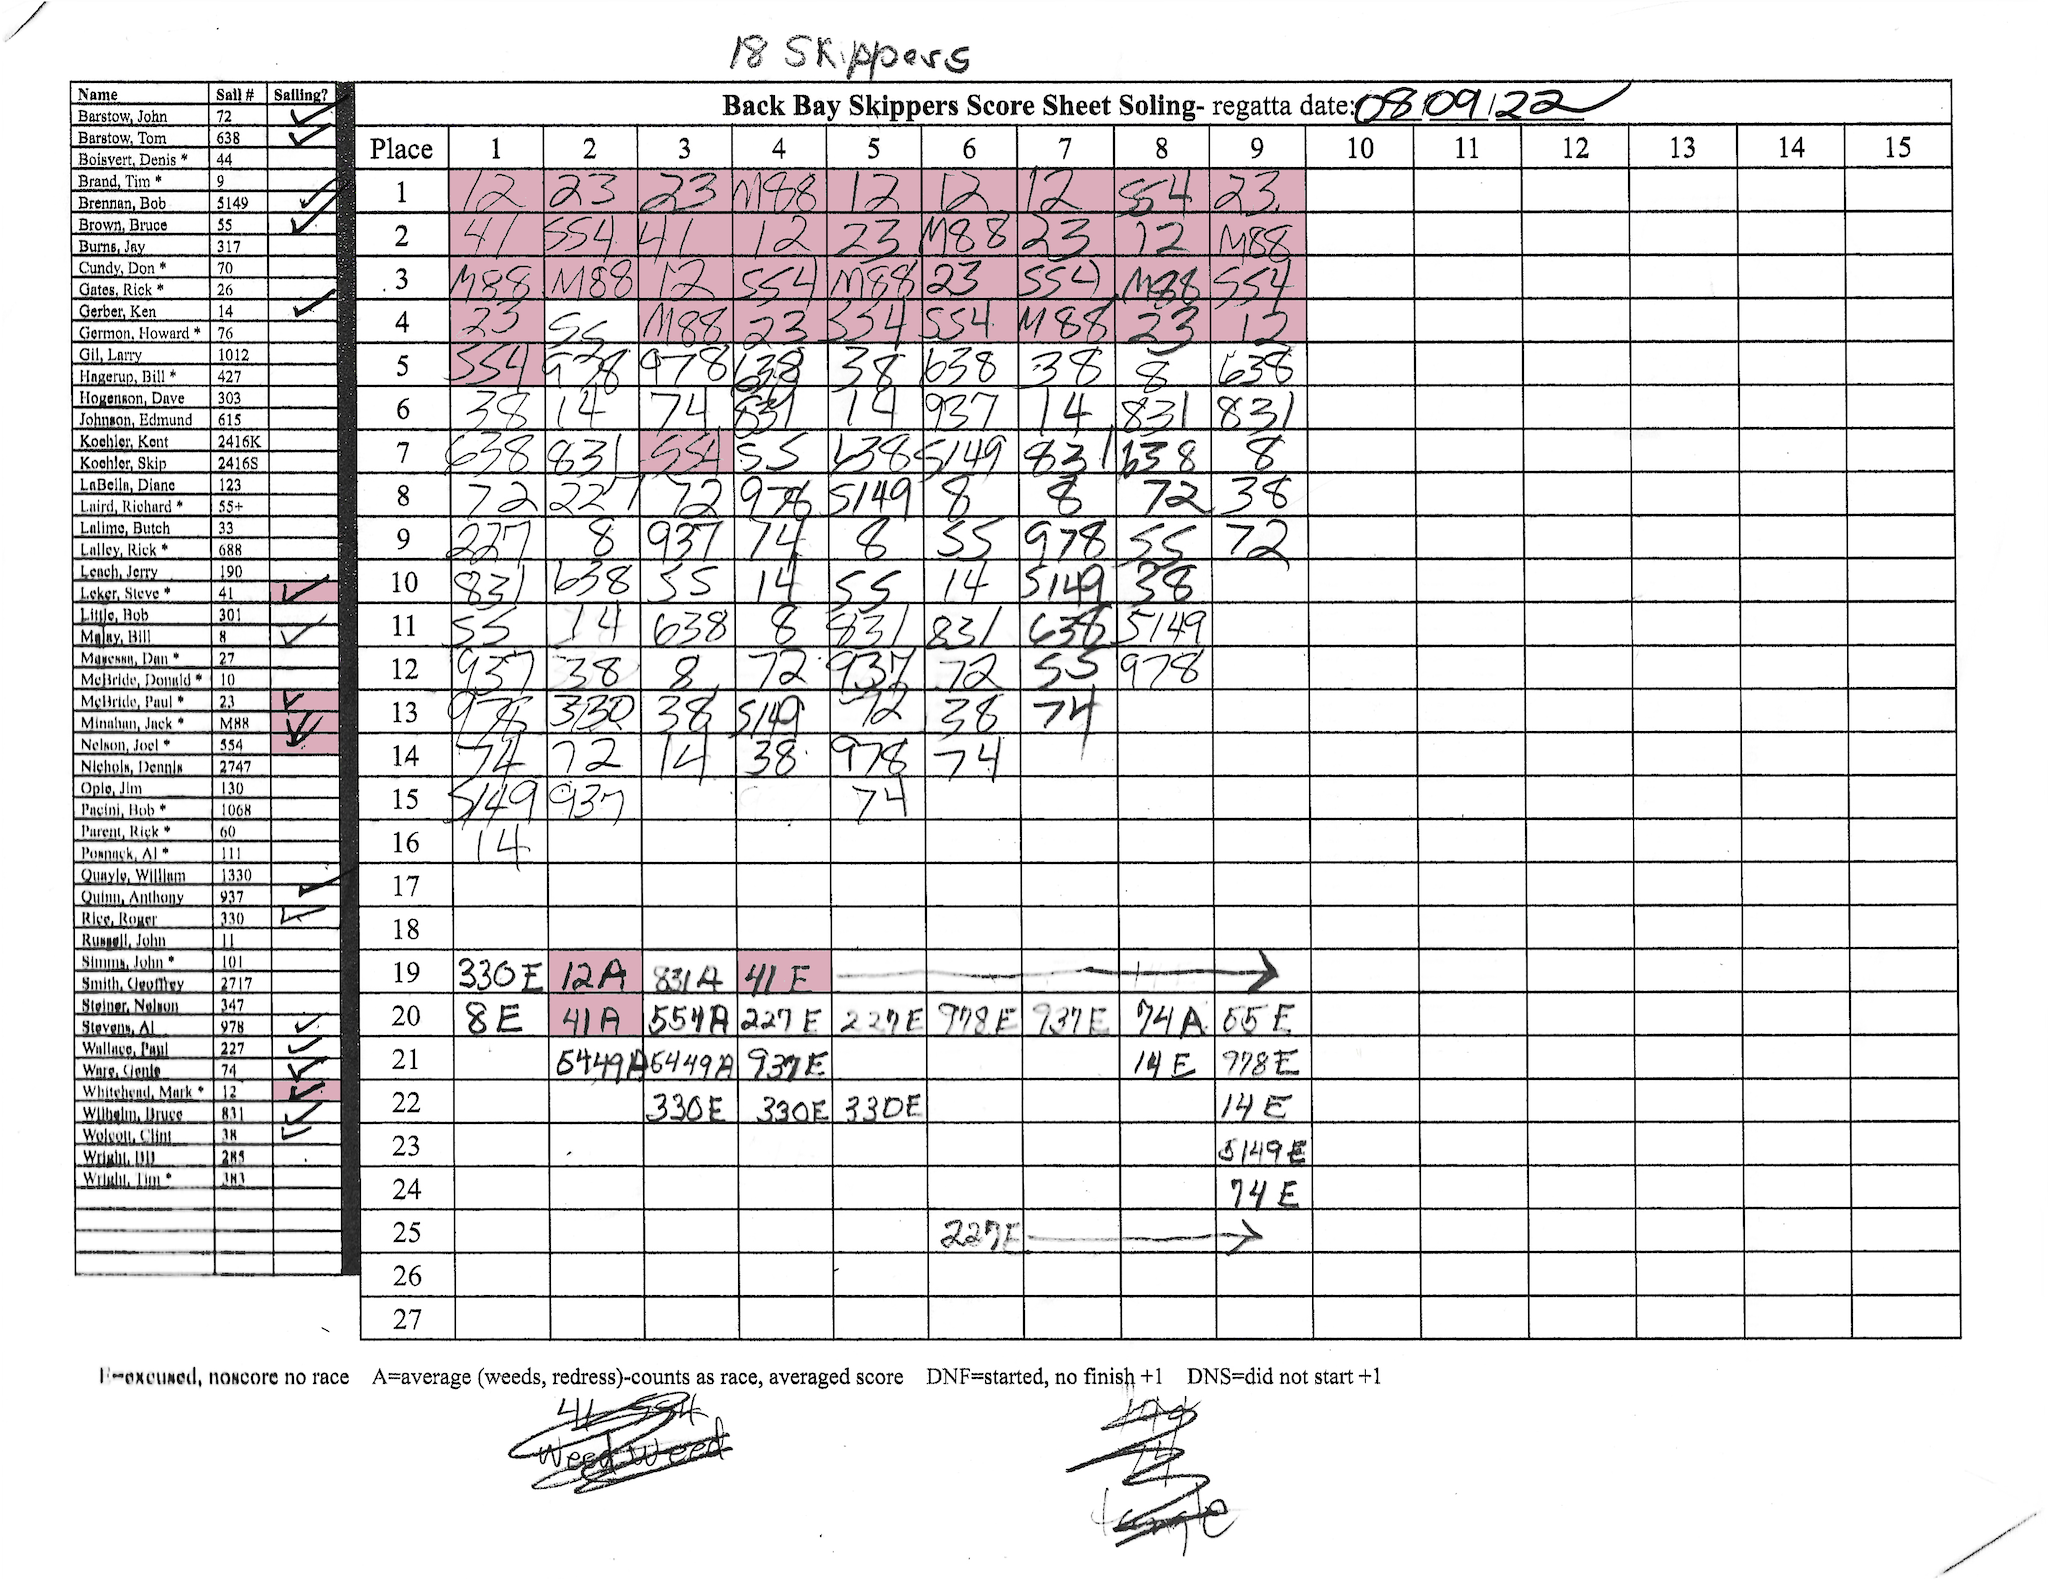 18 Skippers
Name Sail # Sailing?
Back Bay Skippers Score Sheet Soling- regatta date: 08/09/22
Barstow, John 72 ✓
Barstow, Tom 638 ✓
Boisvert, Denis * 44
Brand, Tim * 9
Brennan, Bob 5149 ✓
Brown, Bruce 55 ✓
Burns, Jay 317
Cundy, Don * 70
Gates, Rick * 26
Gerber, Ken 14 ✓
Germon, Howard * 76
Gil, Larry 1012
Hagerup, Bill * 427
Hogenson, Dave 303
Johnson, Edmund 615
Koehler, Kent 2416K
Koehler, Skip 2416S
LaBella, Diane 123
Laird, Richard * 55+
Lalime, Butch 33
Lalley, Rick * 688
Leach, Jerry 190
Leker, Steve * 41 ✓
Little, Bob 301
Malay, Bill 8 ✓
Mayessn, Dan * 27
McBride, Donald * 10
McBride, Paul * 23 ✓
Minahan, Jack * M88 ✓
Nelson, Joel * 554 ✓
Nichols, Dennis 2747
Opie, Jim 130
Pacini, Bob * 1068
Parent, Rick * 60
Posnack, Al * 111
Quayle, William 1330
Quinn, Anthony 937 ✓
Rice, Roger 330 ✓
Russell, John 11
Simms, John * 101
Smith, Geoffrey 2717
Steiner, Nelson 347
Stevens, Al 978 ✓
Wallace, Paul 227 ✓
Ware, Genie 74 ✓
Whitehead, Mark * 12 ✓
Wilhelm, Bruce 831 ✓
Wolcott, Clint 38 ✓
Wright, DD 285
Wright, Tim * 383
Place 1 2 3 4 5 6 7 8 9 10 11 12 13 14 15
1 12 23 23 M88 12 12 12 554 23
2 41 554 41 12 23 M88 23 12 M88
3 M88 M88 12 554 M88 23 554 M88 554
4 23 55 M88 23 554 554 M88 23 12
5 554 978 978 638 38 638 38 8 638
6 38 14 74 831 14 937 14 831 831
7 638 831 554 55 638 5149 831 638 8
8 72 227 72 978 5149 8 8 72 38
9 227 8 937 74 8 55 978 55 72
10 831 638 55 14 55 14 5149 38
11 55 14 638 8 831 831 638 5149
12 937 38 8 72 937 72 55 978
13 978 330 38 5149 72 38 74
14 74 72 14 38 978 74
15 5149 937 74
16 14
17
18
19 330E 12A 831A 41E →
20 8E 41A 554A 227E 227E 978E 937E 74A 55E
21 5449A 5449A 937E 14E 978E
22 330E 330E 330E 14E
23 5149E
24 74E
25 227E →
26
27
E=excused, noscore no race A=average (weeds, redress)-counts as race, averaged score DNF=started, no finish +1 DNS=did not start +1
41 554
Weed Weed